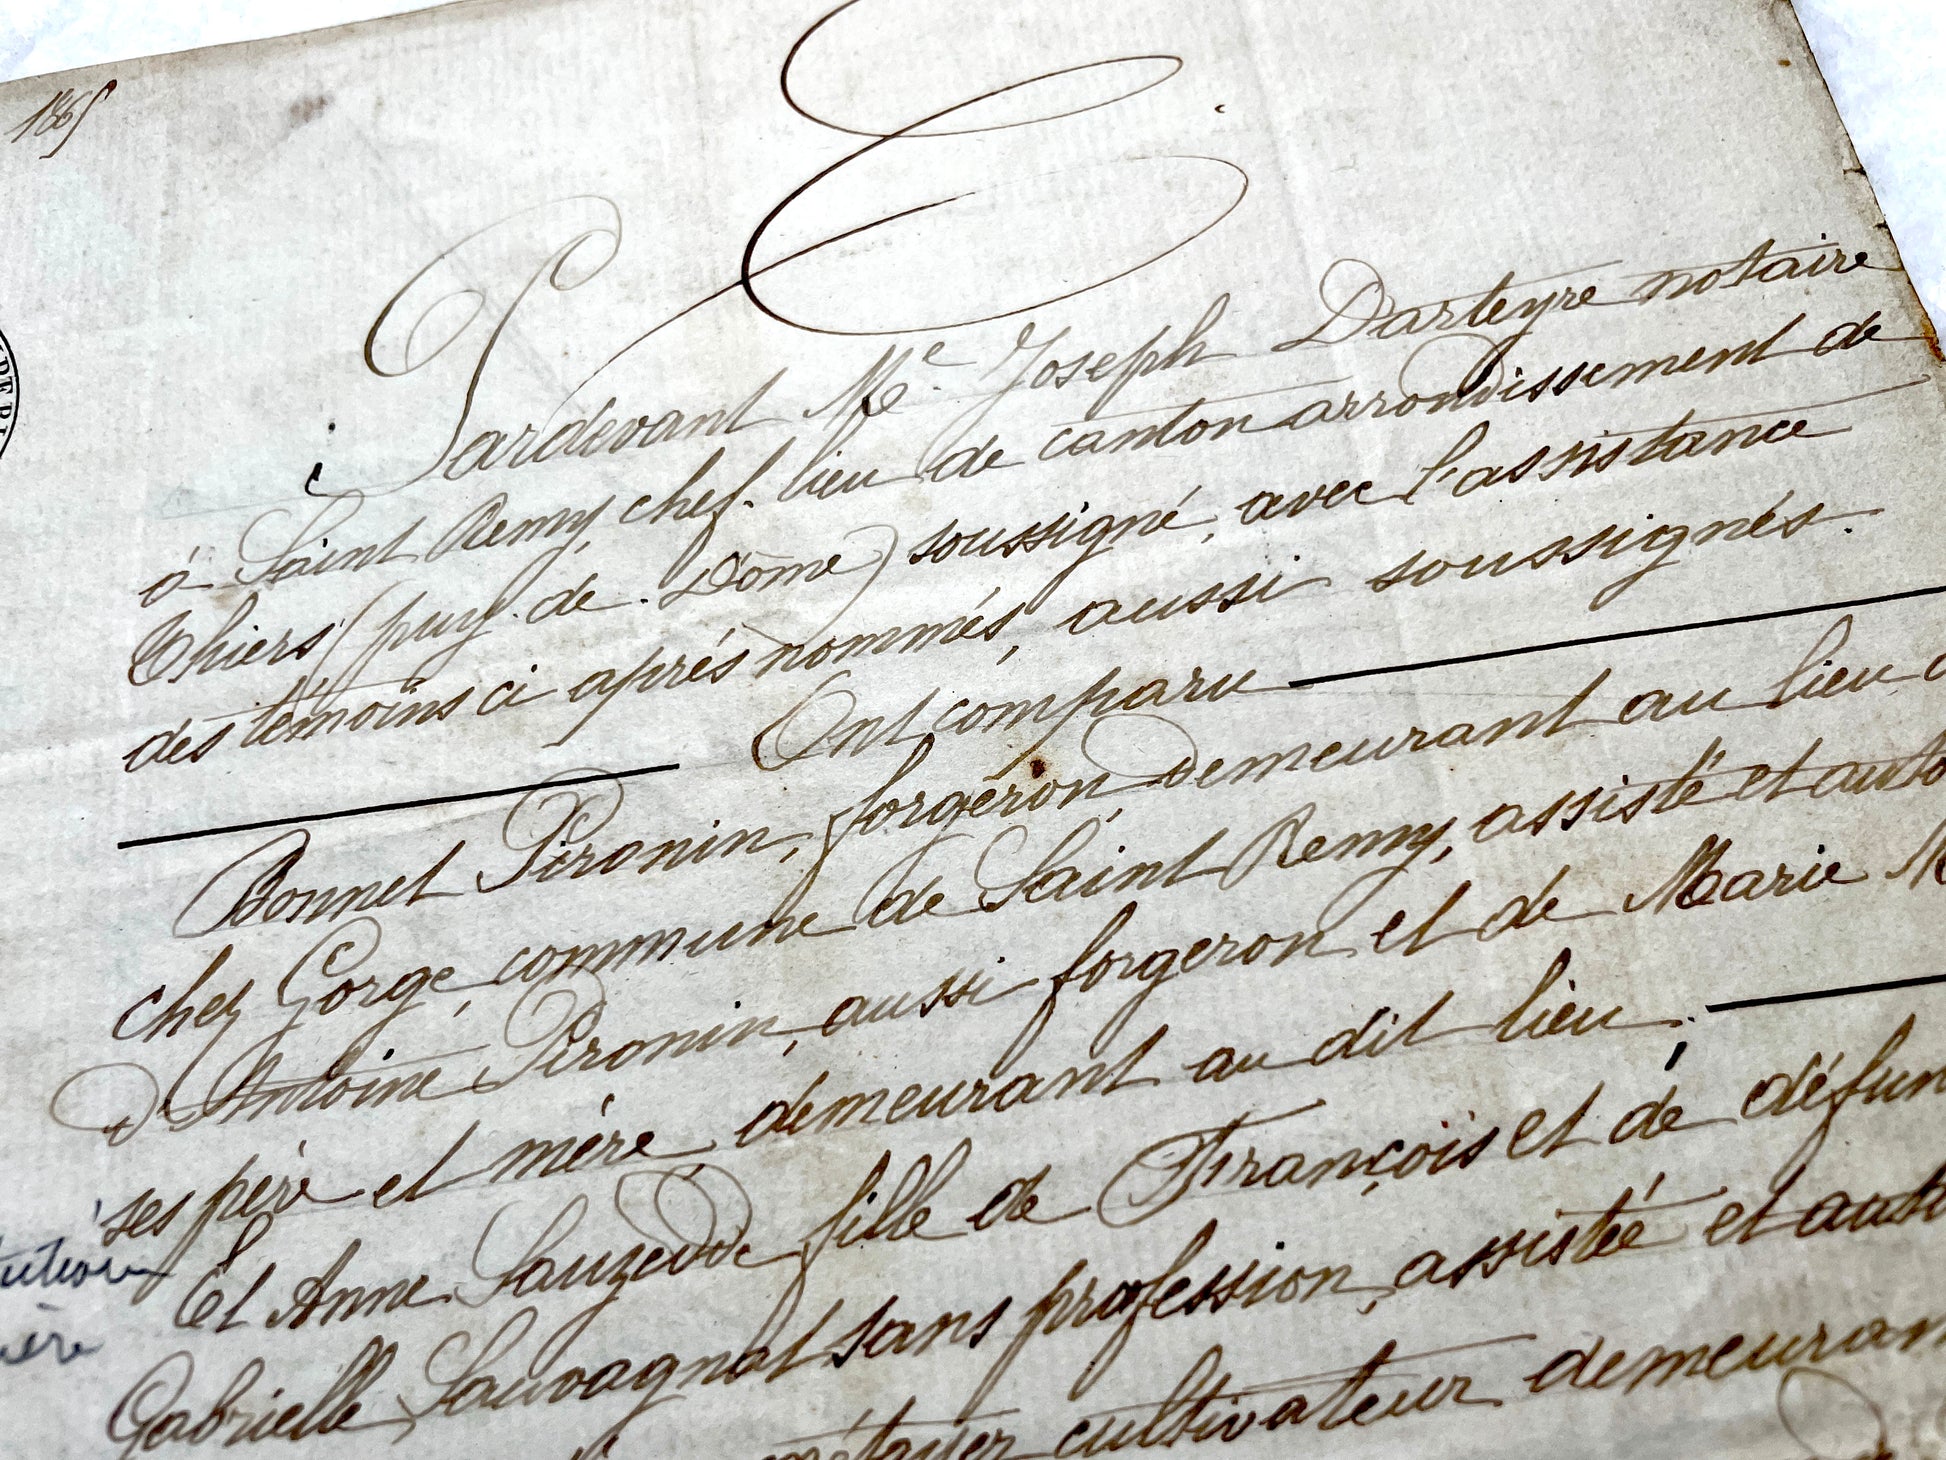 1865
Pardevant Me. Joseph Darteyre notaire
à Saint Remy, chef-lieu de canton arrondissement de
Thiers (puy-de-Dôme) soussigné, avec l'assistance
des témoins ci après nommés, aussi soussignés.
Ont comparu
Bonnet Pironin, forgeron, demeurant au lieu
chez Gorge, commune de Saint Remy, assisté et auto
d'Antoine Pironin, aussi forgeron et de Marie M
ses père et mère, demeurant au dit lieu;
Et Anne Sauzedde fille de François et de défun
Gabrielle Sauvagnat sans profession, assistée et auto
métayer cultivateur demeuran